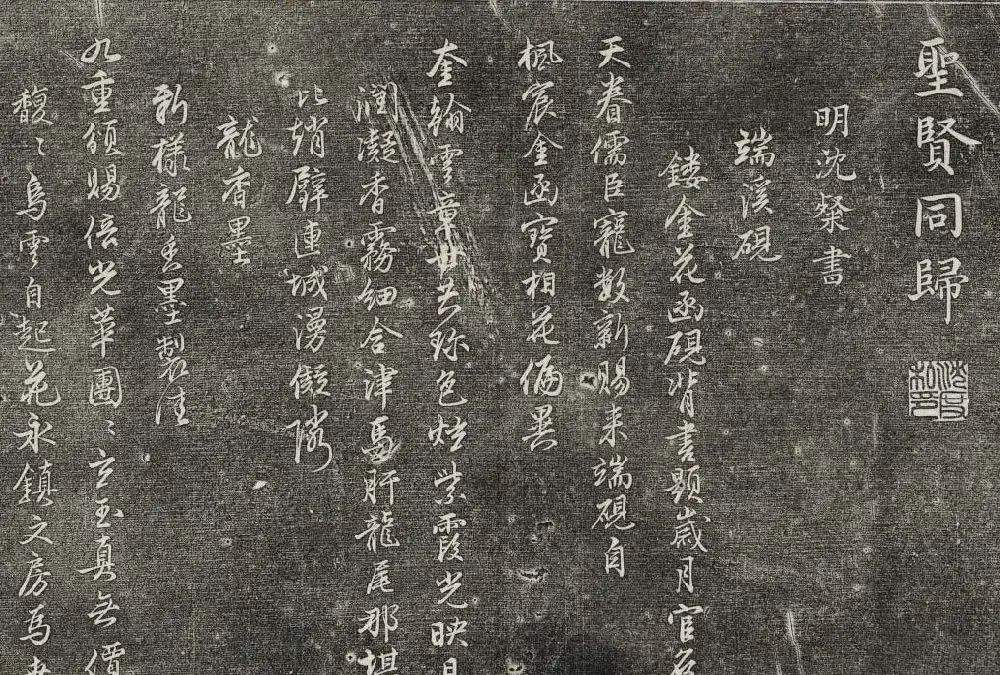 聖賢同歸
明沈粲書
端溪硯
鏤金花函硯背書題歲月官名
天眷儒臣寵數新賜来端硯自
楓宸金函寳相花偏異
奎翰雲章世共珎色烂紫霞光映日
潤凝香霧細合津馬肝龍尾那堪
比趙璧連城漫儗隣
龍香墨
新樣龍香墨製佳
九重頒賜倍光華團〻玄玉真無價
馥〻烏雲自起花永鎮文房為